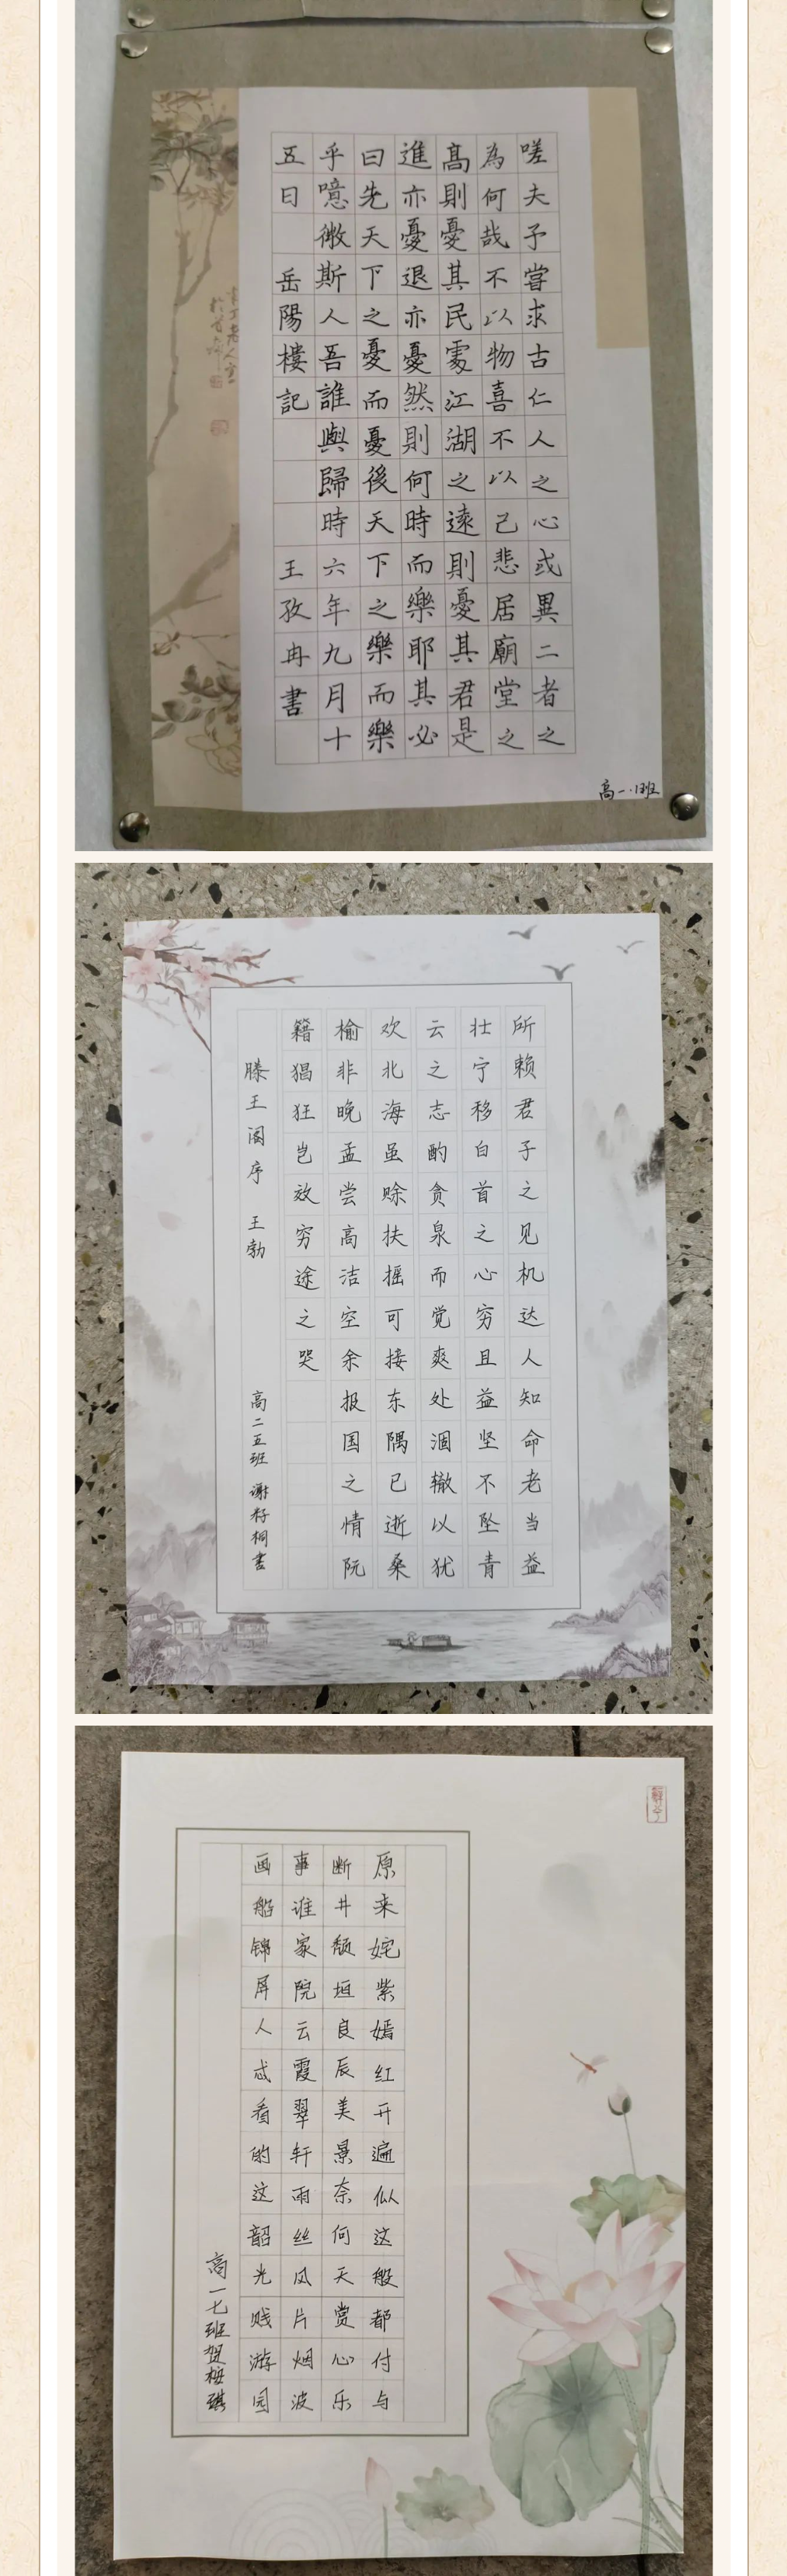 嗟夫予嘗求古仁人之心或異二者之
為何哉不以物喜不以己悲居廟堂之
高則憂其民處江湖之遠則憂其君是
進亦憂退亦憂然則何時而樂耶其必
曰先天下之憂而憂後天下之樂而樂
乎噫微斯人吾誰與歸時六年九月十
五日 岳陽樓記 王孜冉書
高一·1班
所赖君子之见机达人知命老当益
壮宁移白首之心穷且益坚不坠青
云之志酌贪泉而觉爽处涸辙以犹
欢北海虽赊扶摇可接东隅已逝桑
榆非晚孟尝高洁空余报国之情阮
籍猖狂岂效穷途之哭
滕王阁序 王勃 高二五班 谢籽桐书
原来姹紫嫣红开遍似这般都付与
断井颓垣良辰美景奈何天赏心乐
事谁家院云霞翠轩雨丝风片烟波
画船锦屏人忒看的这韶光贱游园
高一七班贺桠琪